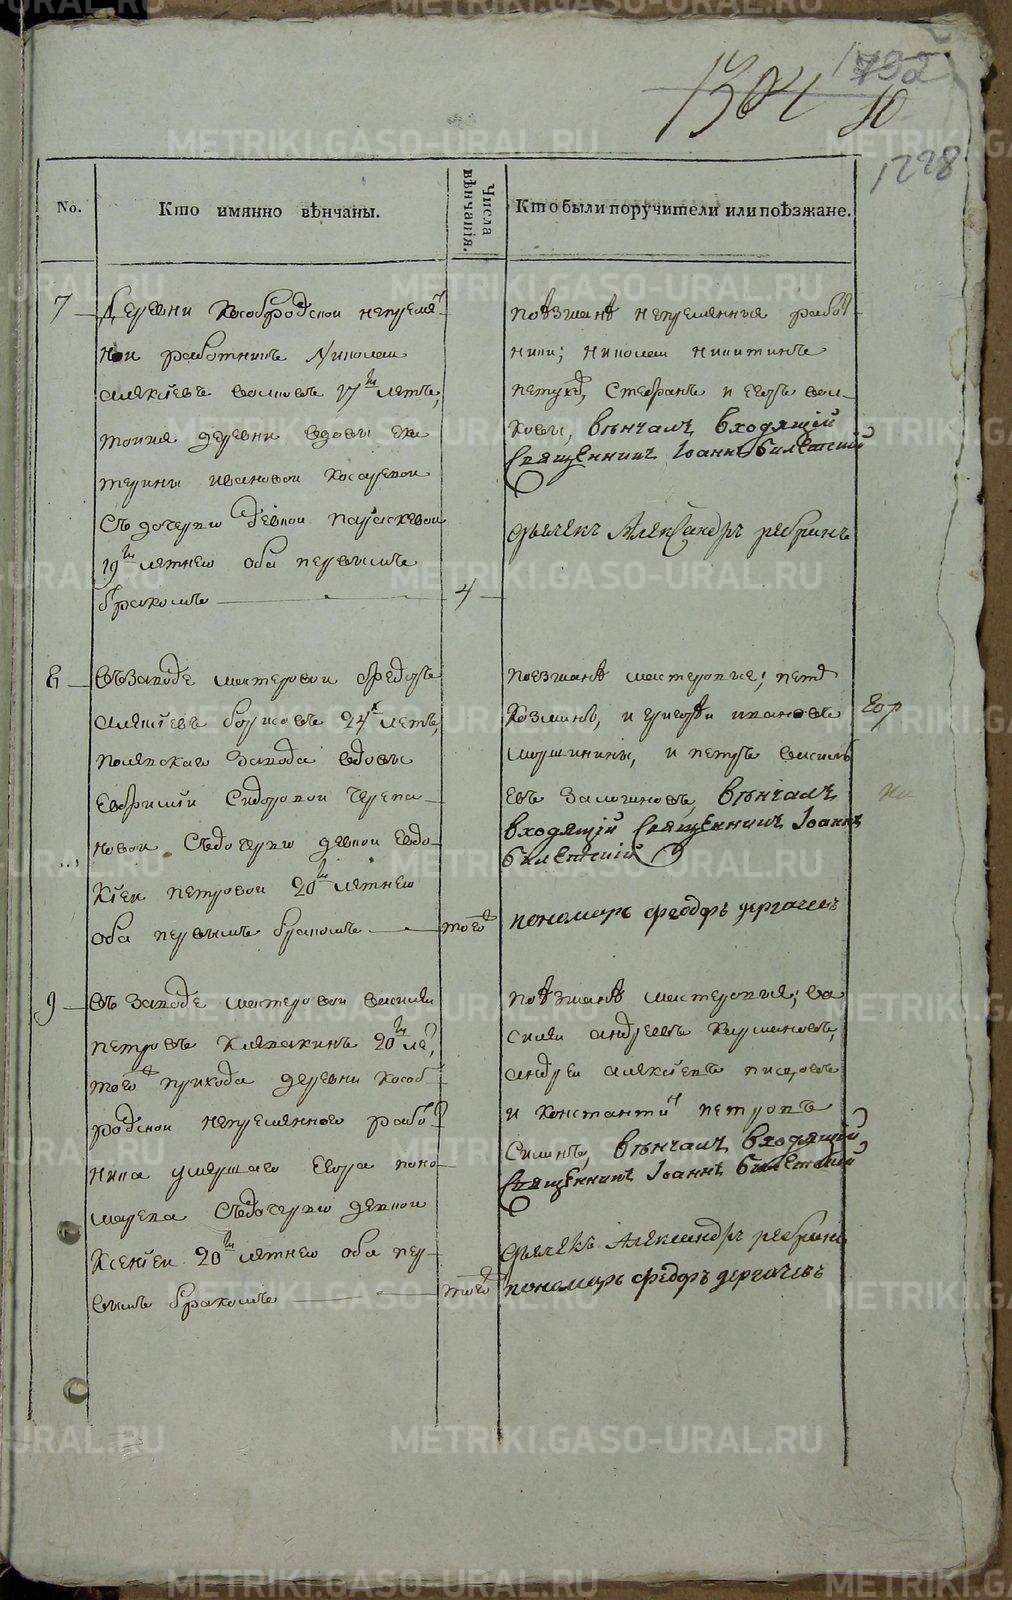 1792
1304
10
1228
No.
Кто имянно вѣнчаны.
Числа вѣнчанія.
Кто были поручители или поѣзжане.
7
Деревни Кособродской непремѣ-
ной работникъ Николай
Алексѣевъ Волковъ 17ти летъ,
тоижа деревни вдовы Ека
терины Ивановой Косаревой
съ дочерью девкой Параскевой
19ти летнею оба первымъ
бракомъ
4
поѣзжанѣ непремѣнныя работ-
ники; Николай Никитинъ
Петухов, Стефанъ и Егоръ Вол-
ковы, вѣнчалъ входящій
священникъ Іоаннъ Билетскій
дьячекъ Александръ Ребринъ
8
Въ заводе мастеровой Федоръ
Алексѣевъ Борисовъ 24х летъ,
Полевскаго завода вдовы
Евфримии Сидоровой Черепа-
новой съ дочерью девкой Евдо-
кіей Петровой 20ти летнею
оба первымъ бракомъ
того
поезжанѣ мастеровые; Петр
Козминъ, и Григорѣи Ивановъ
Мушинины, и Петръ Василь
евъ вѣнчалъ
входящій священникъ Іоаннъ
Билетскій
пономарь Феодоръ Дергачевъ
9
Въ заводе мастеровой Василей
Петровъ 20ти ле,
того прихода деревни Кособ-
родской непремѣнного работ-
ника умершаго Егора Поно-
марева съ дочерью девкой
Ксенѣей 20ти летнею оба пер-
вымъ бракомъ
того
поѣзжанѣ мастеровыя; Ва
силей Андреевъ
Андрей Алексѣевъ
и Константин Петровъ
Силинъ, вѣнчалъ входящій
священникъ Іоаннъ Билетскій
дьячекъ Александръ Ребринъ
пономарь Федоръ Дергачевъ
METRIKI.GASO-URAL.RU